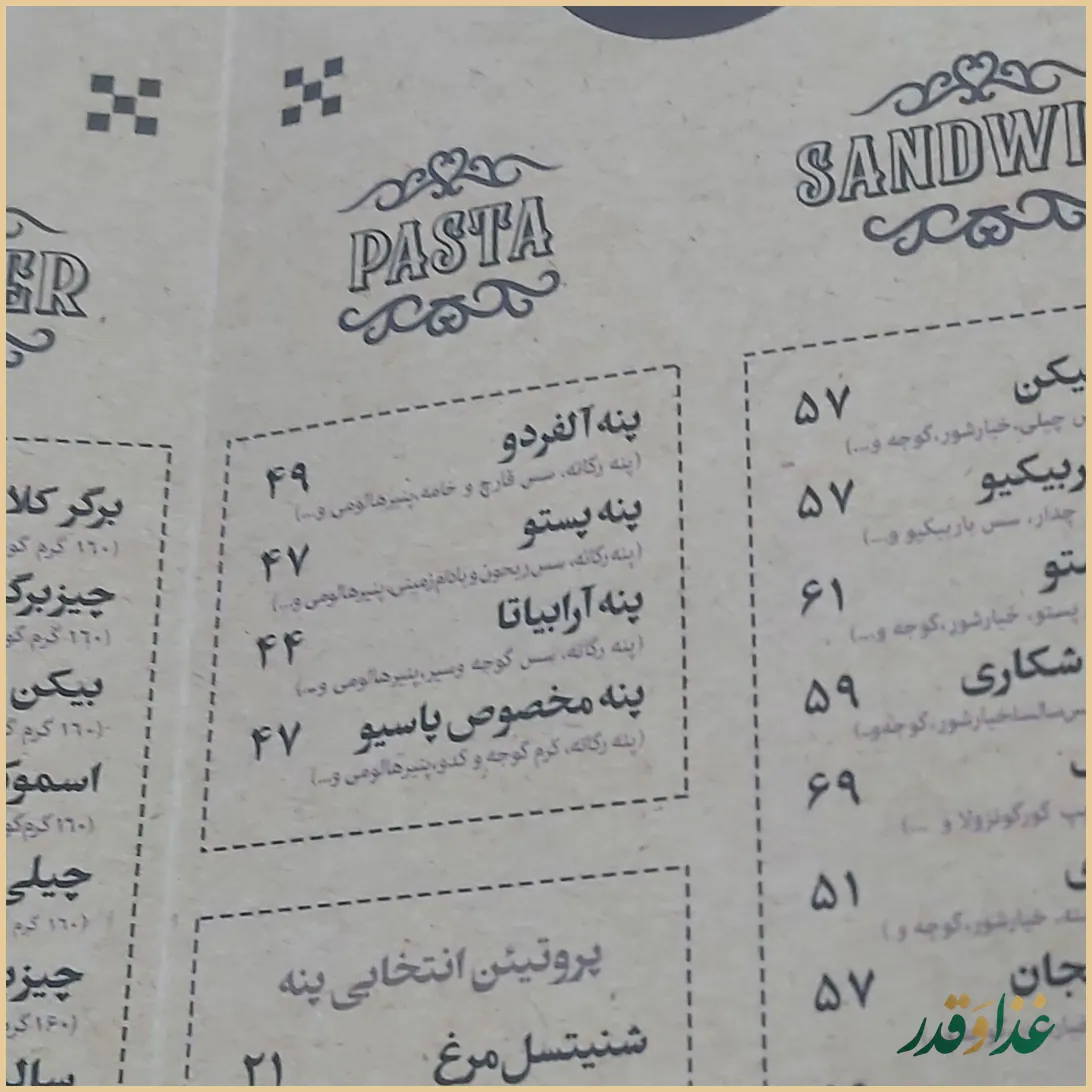 PASTA
پنه آلفردو ۴۹
(پنه رگاته، سس قارچ و خامه،پنیرهالومی و...)
پنه پستو ۴۷
(پنه رگاته، سس ریحون و بادام زمینی،پنیرهالومی و...)
پنه آرابیاتا ۴۴
(پنه رگاته، سس گوجه وسیر،پنیرهالومی و...)
پنه مخصوص پاسیو ۴۷
(پنه رگاته، کرم گوجه و کدو،پنیرهالومی و...)
پروتیئن انتخابی پنه
شنیتسل مرغ ۲۱
SANDWI
یکن ۵۷
چیلی،خیارشور،گوجه و...)
ربیکیو ۵۷
چدار، سس باربیکیو و...)
ستو ۶۱
پستو، خیارشور،گوجه و...)
شکاری ۵۹
سالسا،خیارشور،گوجه‌و..)
۶۹
گورگونزولا و ...)
۵۱
خیارشور،گوجه و )
جان ۵۷
ER
برگر کلا
(۱۶۰ گرم گو
چیزبرگ
(۱۶۰ گرم گو
بیکن
(۱۶۰ گرم گ
اسموک
(۱۶۰ گرم‌گو
چیلی
(۱۶۰ گرم
چیزب
(۱۶۰ گرم
سال
غذا و قدر